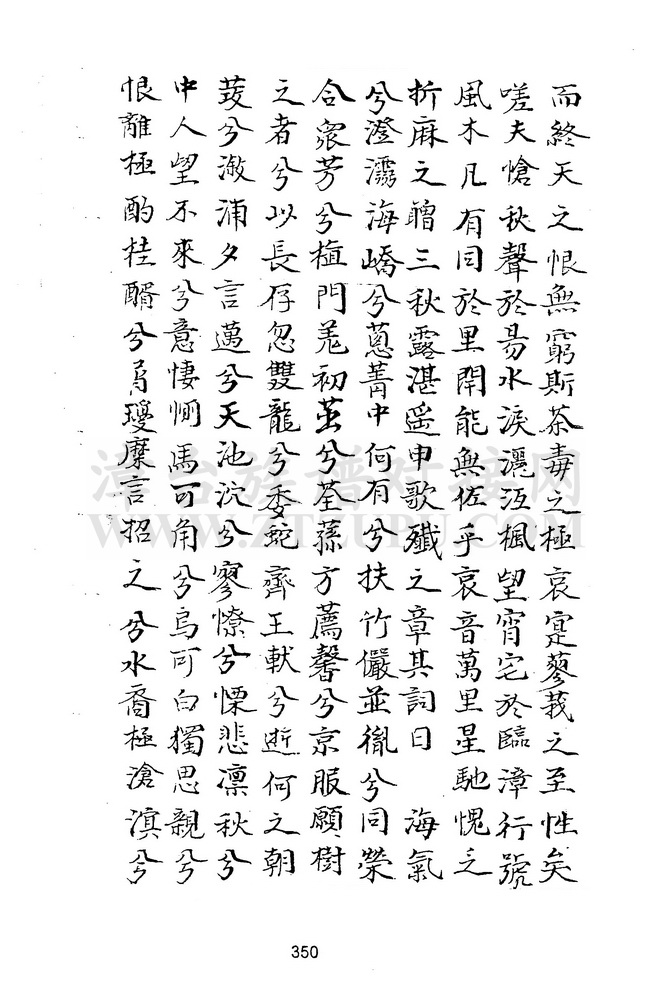 而終天之恨無窮斯荼毒之極哀寔蓼莪之至性矣
嗟夫愴秋聲於易水淚灑江楓望宵宅於臨漳行號
風木凡有同於里閈能無佐乎哀音萬里星馳愧乏
折麻之贈三秋露湛遥申歌殲之章其詞曰　海氣
兮澄瀛海嶠兮蔥菁中何有兮扶竹儼並胤兮同榮
合衆芳兮植門羌初茁兮荃蓀方薦馨兮京服願樹
之者兮以長存忽雙龍兮委蛇齊玉軑兮逝何之朝
菱兮溆浦夕言邁兮天池泬兮寥憭兮慄悲凛秋兮
中人望不來兮意悽惻馬可角兮烏可白獨思親兮
恨離極酌桂醑兮為瓊糜言招之兮水裔極滄溟兮
漳台族譜對接網
WWW.ZTZUPU.COM
350